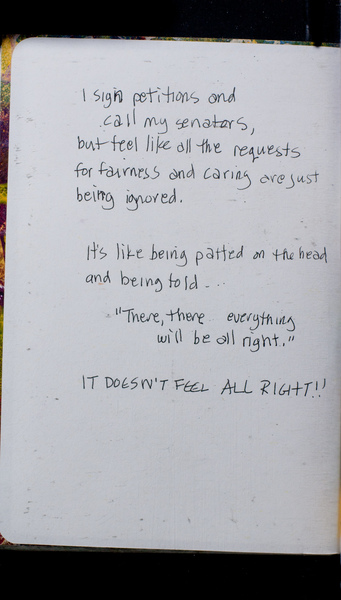 I sign petitions and
call my senators,
but feel like all the requests
for fairness and caring are just
being ignored.
It's like being patted on the head
and being told...
"There, there everything
will be all right."
IT DOESN'T FEEL ALL RIGHT!!